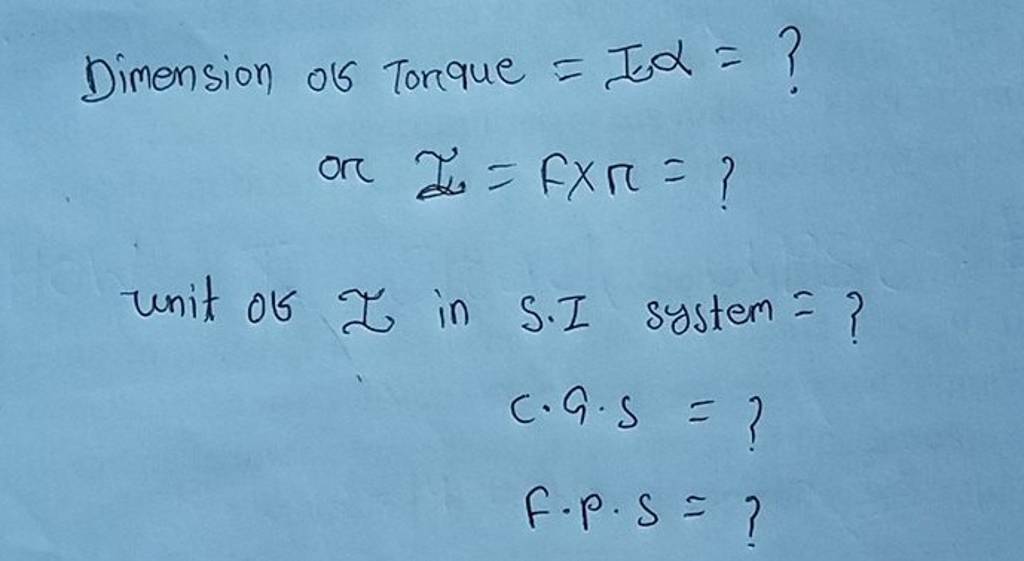 Dimension of Torque = Iα = ?
or τ = F×r = ?
unit of τ in S.I system = ?
C.G.S = ?
F.P.S = ?